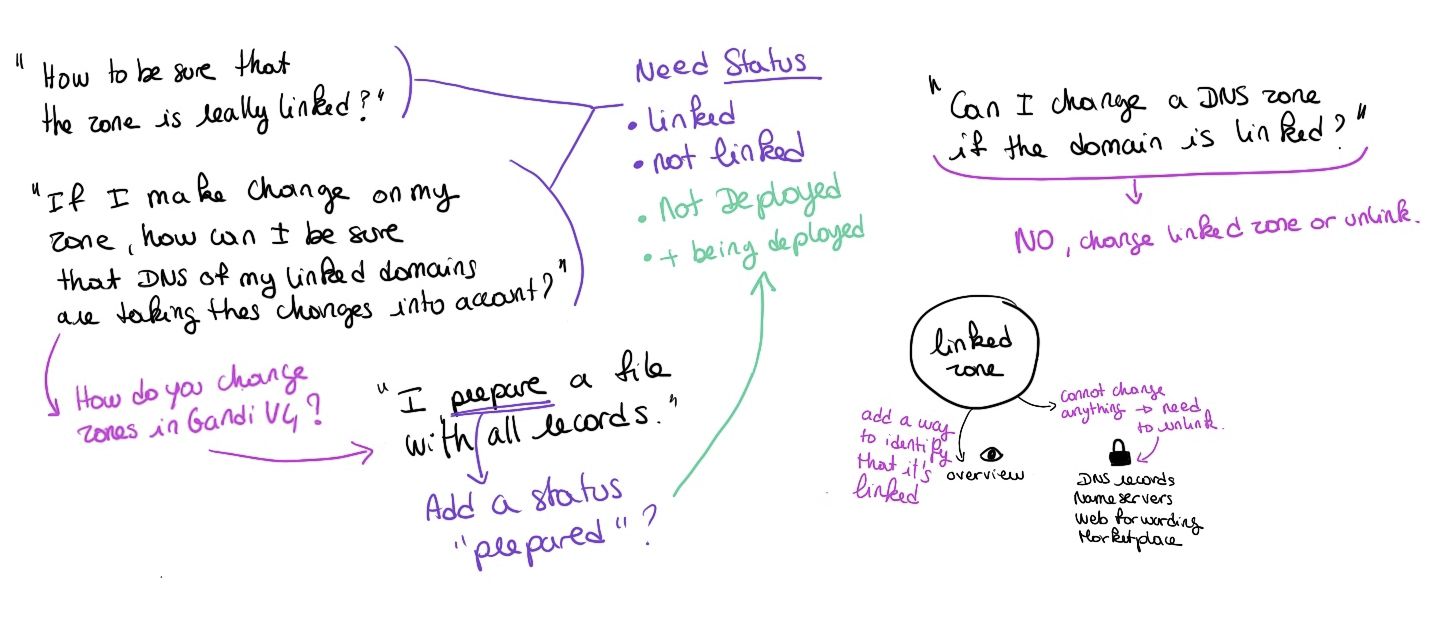 "How to be sure that
the zone is really linked?"
"If I make change on my
zone, how can I be sure
that DNS of my linked domains
are taking thes changes into account?"
How do you change
zones in Gandi V4?
"I prepare a file
with all records."
Add a status
"prepared"?
Need Status
• linked
• not linked
• Not Deployed
• + being deployed
"Can I change a DNS zone
if the domain is linked?"
NO, change linked zone or unlink.
linked
zone
add a way
to identify
that it's
linked
overview
cannot change
anything → need
to unlink.
DNS records
Nameservers
Web forwarding
Marketplace